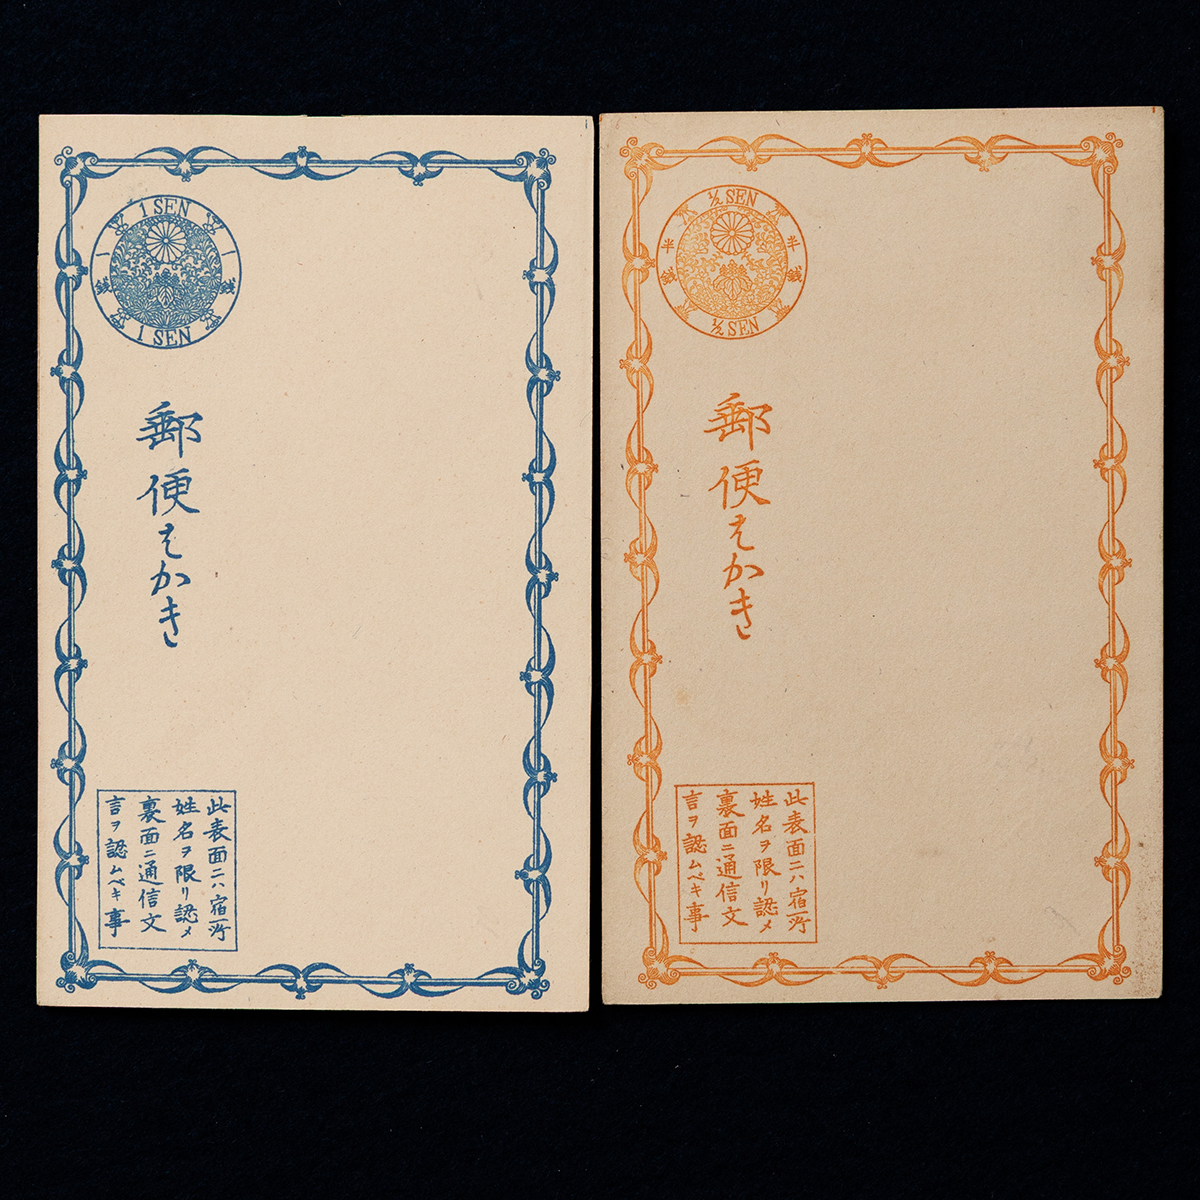 1 SEN
一銭
一銭
1 SEN
郵便はかき
此表面ニハ宿所
姓名ヲ限リ認メ
裏面ニ通信文
言ヲ認ムベキ事
½ SEN
半銭
半銭
½ SEN
郵便はかき
此表面ニハ宿所
姓名ヲ限リ認メ
裏面ニ通信文
言ヲ認ムベキ事